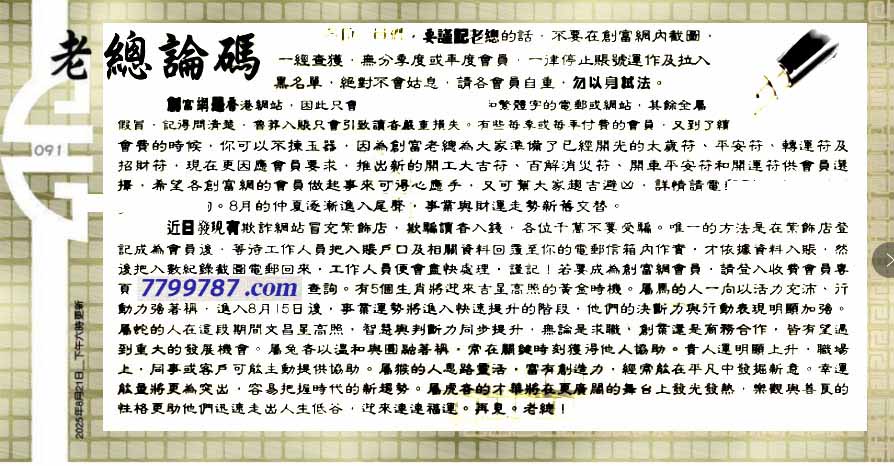 老總論碼
，要謹記老總的話，不要在創富網內截圖，
一經查獲，無分季度或年度會員，一律停止賬號運作及拉入
黑名單，絕對不會姑息，請各會員自重，勿以身試法。
創富網是香港網站，因此只會 和繁體字的電郵或網站，其餘全屬
假冒，記得問清楚，魯莽入賬只會引致讀者嚴重損失。有些每季或每年付費的會員，又到了續
會費的時候，你可以不揀玉器，因為創富老總為大家準備了已經開光的太歲符、平安符、轉運符及
招財符，現在更因應會員要求，推出新的開工大吉符、百解消災符、開車平安符和開運符供會員選
擇，希望各創富網的會員做起事來可得心應手，又可幫大家趨吉避凶，詳情請電
。8月的仲夏逐漸進入尾聲，事業與財運走勢新舊交替。
近日發現有欺詐網站冒充紫飾店，欺騙讀者入錢，各位千萬不要受騙。唯一的方法是在紫飾店登
記成為會員後，等待工作人員把入賬戶口及相關資料回覆至你的電郵信箱內作實，才依據資料入賬，然
後把入數紀錄截圖電郵回來，工作人員便會盡快處理，謹記！若要成為創富網會員，請登入收費會員專
頁 7799787 .com 查詢。有5個生肖將迎來吉星高照的黃金時機。屬馬的人一向以活力充沛、行
動力強著稱，進入8月15日後，事業運勢將進入快速提升的階段，他們的決斷力與行動表現明顯加強。
屬蛇的人在這段期間文昌星高照，智慧與判斷力同步提升，無論是求職、創業還是商務合作，皆有望遇
到重大的發展機會。屬兔者以溫和與圓融著稱，常在關鍵時刻獲得他人協助。貴人運明顯上升，職場
上，同事或客戶可能主動提供協助。屬猴的人思路靈活，富有創造力，經常能在平凡中發掘新意。幸運
能量將更為突出，容易把握時代的新趨勢。屬虎者的才華將在更廣闊的舞台上發光發熱，樂觀與善良的
性格更助他們迅速走出人生低谷，迎來連連福運。再見。老總！
091
2025年8月21日_下午六時更新